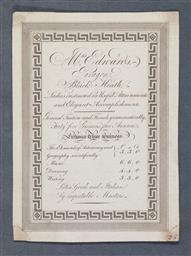 Mrs. Edwards,
Paragon
Black Heath
Ladies instructed in Polite Attainments
and Elegant Accomplishments
General Tuition and French grammatically
Forty five Guineas per Annum
Entrance Three Guineas
The Elements of Astronomy and
Geography scientifically 3.3.0
Music 6.6.0
Drawing 4.4.0
Writing 3.3.0
Latin, Greek and Italian
by reputable Masters